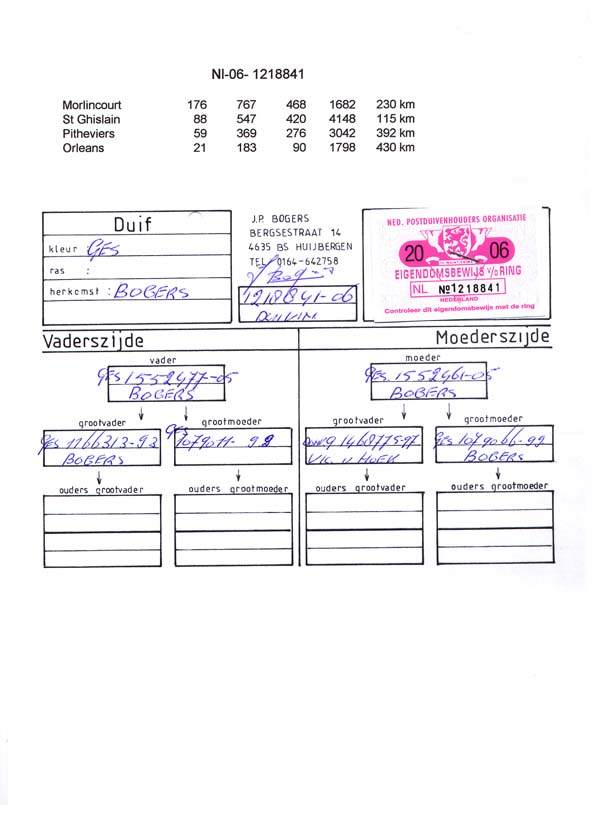 Nl-06- 1218841
Morlincourt 176 767 468 1682 230 km
St Ghislain 88 547 420 4148 115 km
Pitheviers 59 369 276 3042 392 km
Orleans 21 183 90 1798 430 km
Duif
kleur : GES
ras :
herkomst : BOGERS
J.P. BOGERS
BERGSESTRAAT 14
4635 BS HUIJBERGEN
TEL. 0164-642758
1218841-06
DUIVIN
NED. POSTDUIVENHOUDERS ORGANISATIE
20 06
EIGENDOMSBEWIJS v/d RING
NL №1218841
NEDERLAND
Controleer dit eigendomsbewijs met de ring
Vaderszijde Moederszijde
vader moeder
GES 1552477-05 GES. 1552461-05
BOGERS BOGERS
grootvader grootmoeder grootvader grootmoeder
GES 1166313-93 GES 1079011-99 9146877-97 GES 1079066-99
BOGERS V. HOEK BOGERS
ouders grootvader ouders grootmoeder ouders grootvader ouders grootmoeder